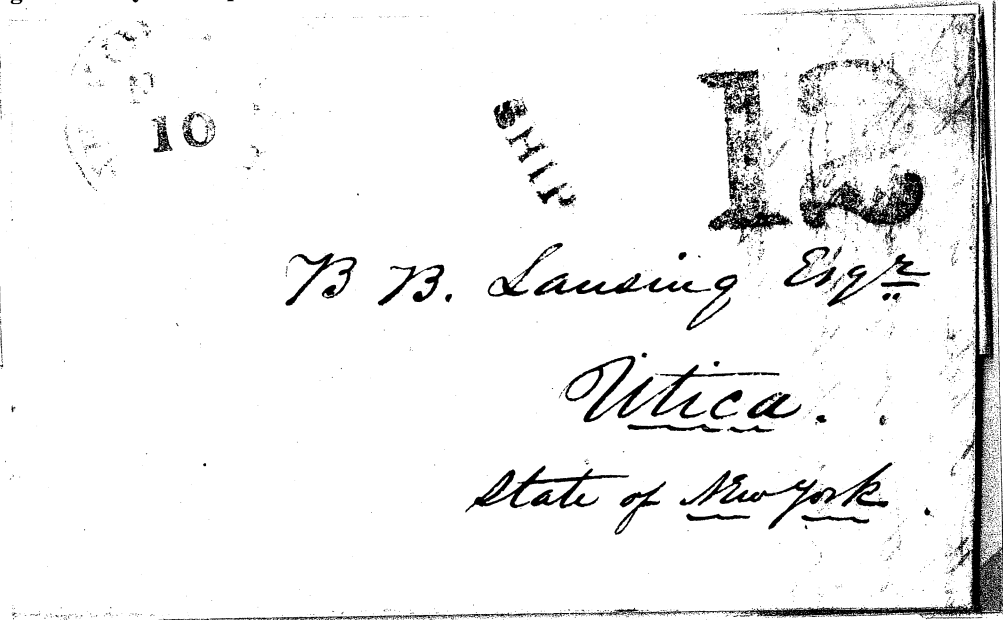 10
SHIP
12
B B. Lansing Esqr
Utica.
State of New York.